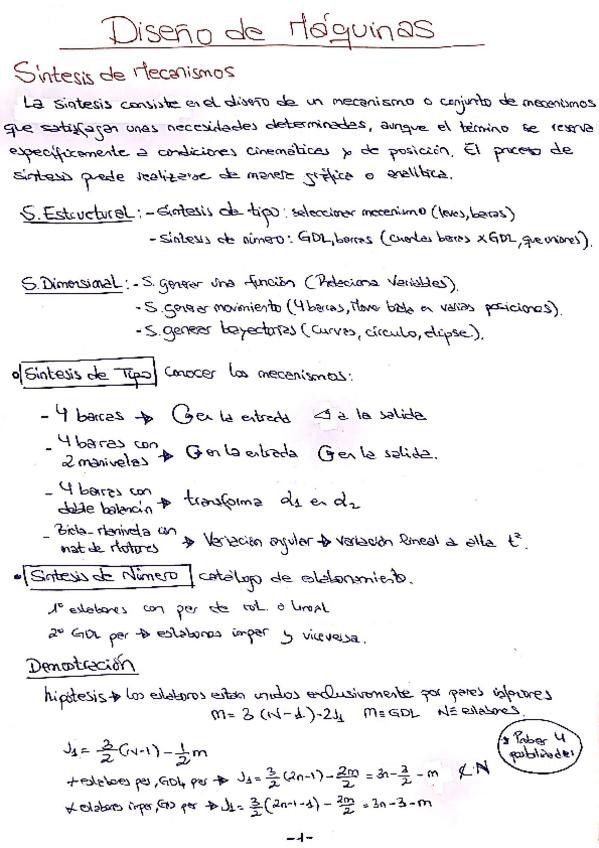 Diseño de Máquinas
Síntesis de Mecanismos
La síntesis consiste en el diseño de un mecanismo o conjunto de mecanismos
que satisfagan unas necesidades determinadas, aunque el término se reserva
específicamente a condiciones cinemáticas y de posición. El proceso de
síntesis puede realizarse de manera gráfica o analítica.
S. Estructural: - Síntesis de tipo: seleccionar mecanismo (levas, barras)
- Síntesis de número: GDL, barras (cuantas barras x GDL, que uniones).
S. Dimensional: - S. generar una función (Relaciona Variables).
- S. generar movimiento (4 barras, barra en varias posiciones).
- S. generar trayectorias (curvas, círculo, elipse).
Síntesis de Tipo conocer los mecanismos:
- 4 barras → G en la entrada a la salida
- 4 barras con
2 manivelas → G en la entrada G en la salida.
- 4 barras con
doble balancín → transforma α1 en α2
- Biela-Manivela con
mat de Motores → Variación angular → variación lineal a alta
• Síntesis de Número catálogo de eslabonamiento.
1º eslabones con par de rot. o lineal
2º GDL par → eslabones impar y viceversa.
Demostración
hipótesis → Los eslabones están unidos exclusivamente por pares inferiores
m = 3 (N-1) - 2J1 M ≡ GDL N ≡ eslabones.
J1 = 3/2 (N-1) - 1/2 m
* eslabones par, GDL par → J1 = 3/2 (2n-1) - 2m/2 = 3n - 3/2 - m ∉ N
* eslabones impar, GDL par → J1 = 3/2 (2n-1-1) - 2m/2 = 3n - 3 - m
* Probar 4
posibilidades
-1-